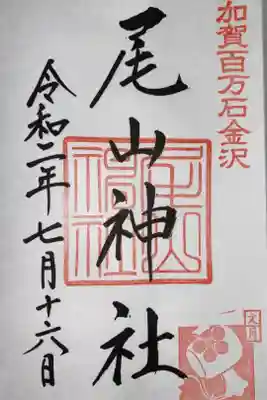 加賀百万石金沢
尾山神社
令和二年七月十六日
文月